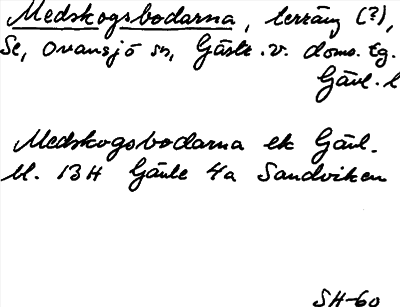 Medskogsbodarna, terräng (?),
Se, Ovansjö sn, Gästr.v. doms. tg.
Gävl. l
Medskogsbodarna ek Gävl.
bl. 13H Gävle 4a Sandviken
SH-60